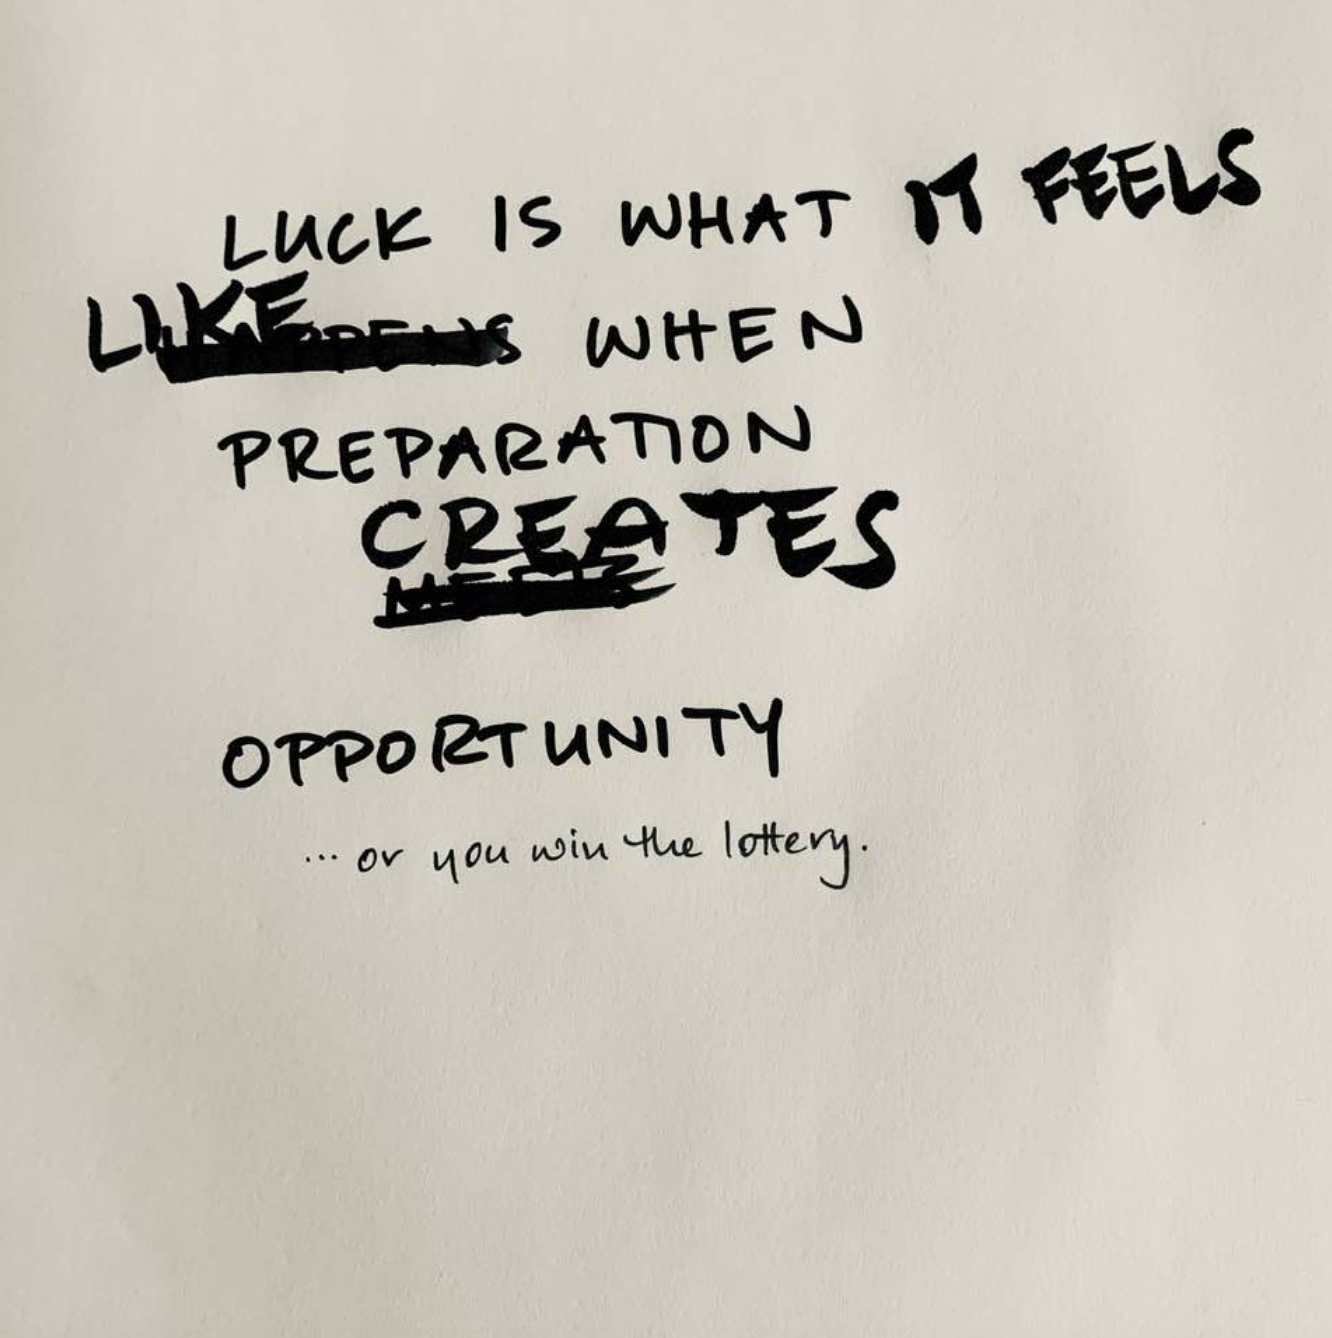 LUCK IS WHAT IT FEELS
LIKE HAPPENS WHEN
PREPARATION
CREATES
MEETS
OPPORTUNITY
... or you win the lottery.